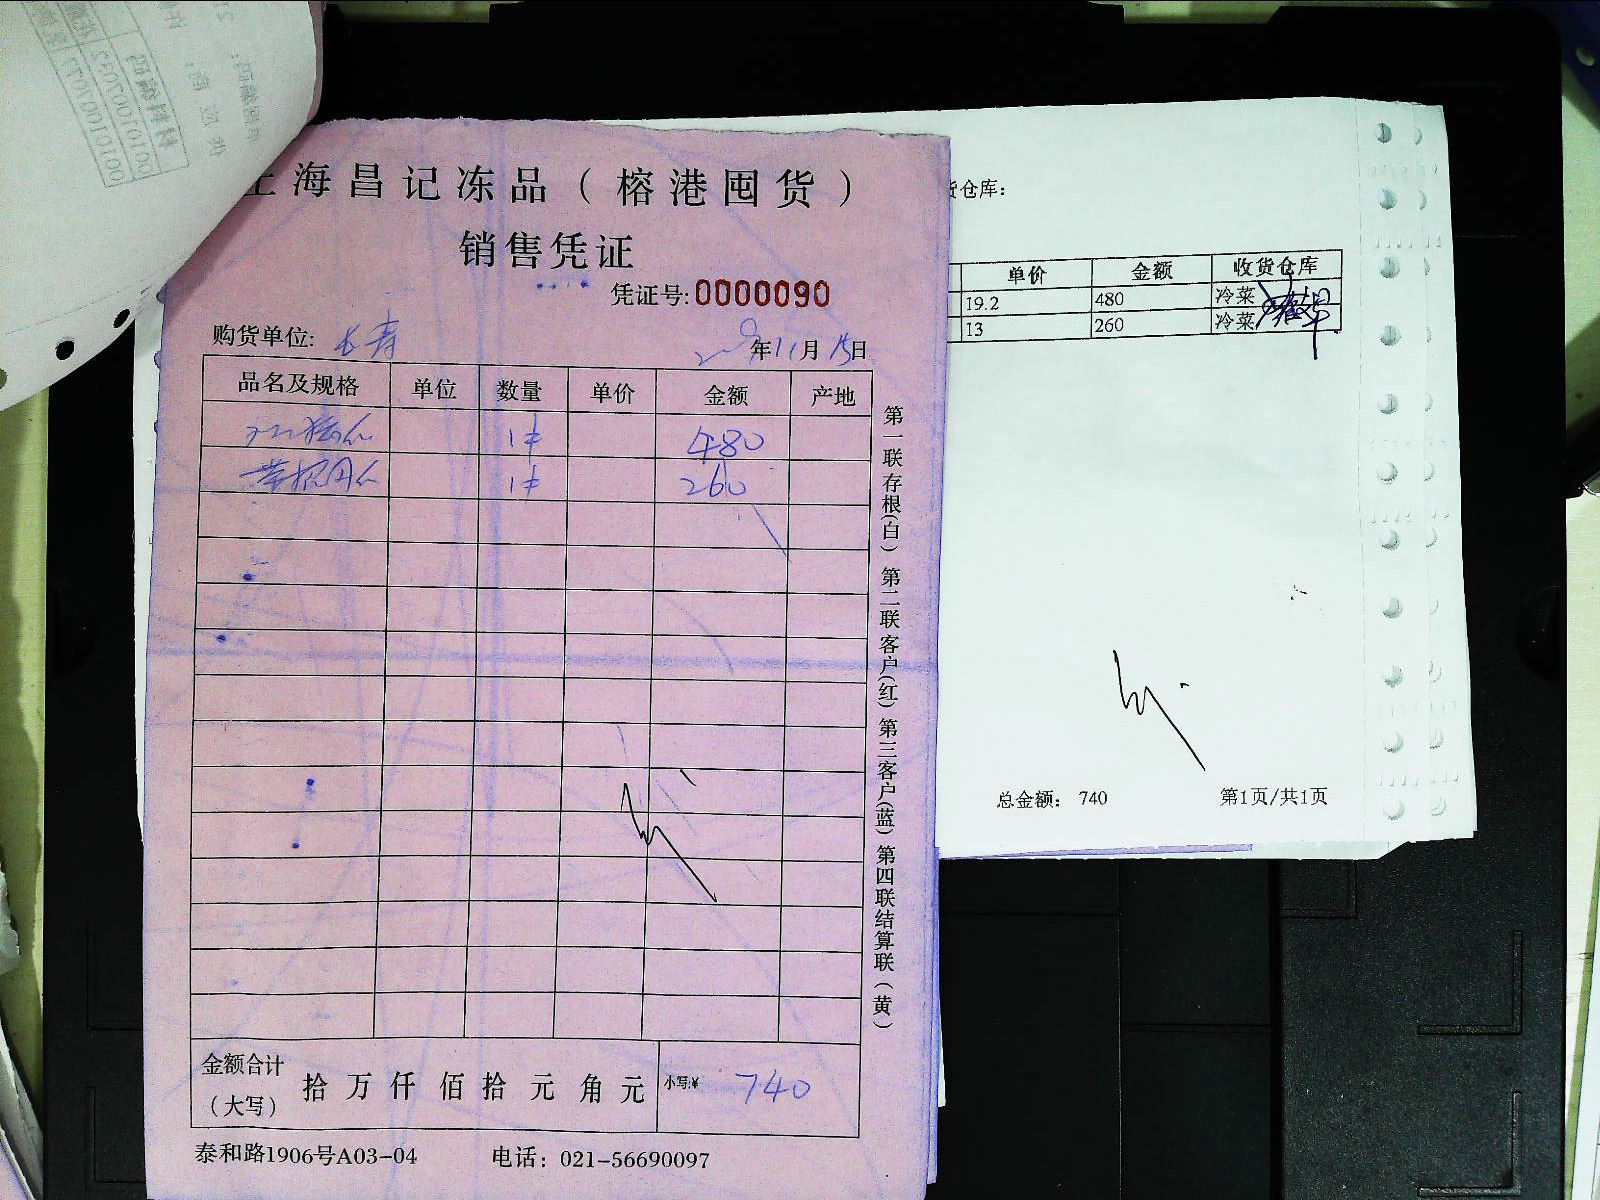 上海昌记冻品（榕港囤货）
销售凭证
凭证号:0000090
购货单位: 长寿
年11月15日
品名及规格 单位 数量 单价 金额 产地
1件 480
1件 260
金额合计
（大写）
拾万仟佰拾元角元
小写:¥ 740
泰和路1906号A03-04 电话：021-56690097
第一联存根(白) 第二联客户(红) 第三客户(蓝) 第四联结算联(黄)
货仓库:
单价 金额 收货仓库
19.2 480 冷菜
13 260 冷菜
总金额： 740 第1页/共1页
材料编码
001010070352
001010070177